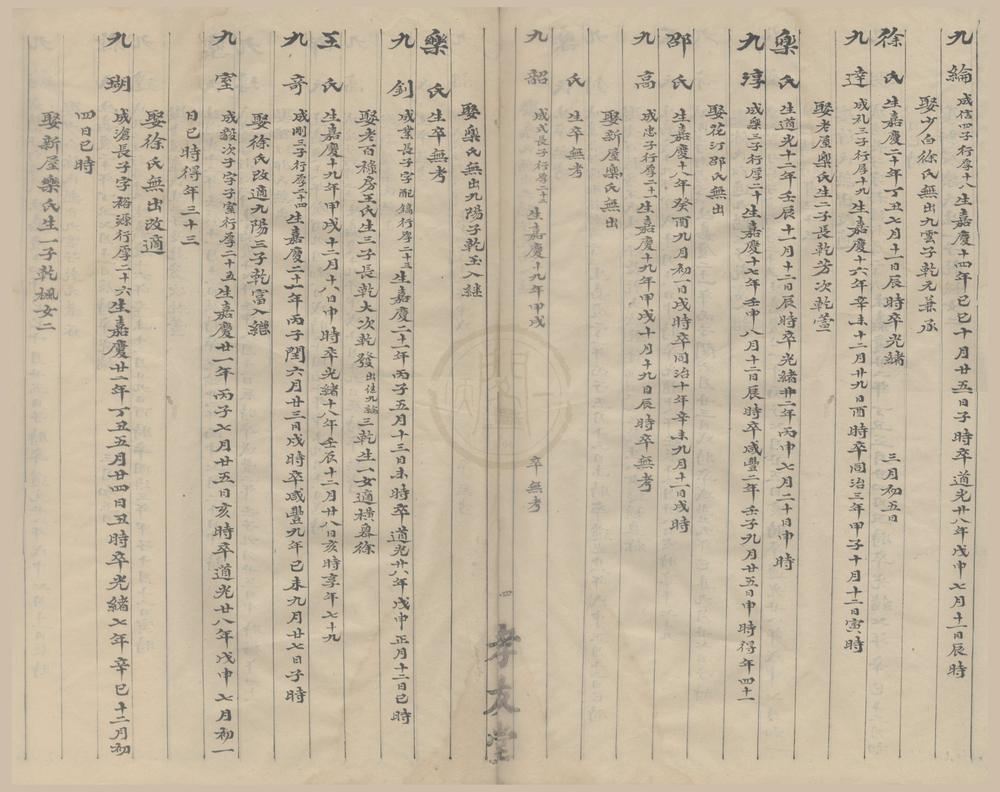 九綸 成信四子行厚十八生嘉慶十四年己巳十月廿五日子時卒道光廿八年戊申七月十一日辰時
娶少白徐氏無出九雲子乾元兼承
徐氏 生嘉慶二十年丁丑七月十一日辰時卒光緒 三月初五日
九達 成礼三子行厚十九生嘉慶十六年辛未十二月廿九日酉時卒同治三年甲子十月十二日寅時
娶老屋樂氏生二子長乾芳次乾萱
樂氏 生道光十二年壬辰十一月十二日辰時卒光緒廿二年丙申七月二十日申時
九淳 成樂二子行厚二十生嘉慶十七年壬申八月十二日辰時卒咸豐二年壬子九月廿五日申時得年四十一
娶花汀邵氏無出
邵氏 生嘉慶十八年癸酉九月初一日戌時卒同治十年辛未九月十一日戌時
九高 成忠子行厚二十一生嘉慶十九年甲戌十月十九日辰時卒無考
娶新屋樂氏無出
氏 生卒無考
九韶 成式長子行厚二十二生嘉慶十九年甲戌 卒無考
四 孝友堂
娶樂氏無出九陽子乾玉入継
樂氏 生卒無考
九釗 成業長子字配鎬行厚二十三生嘉慶二十一年丙子五月十三日未時卒道光廿八年戊申正月十二日巳時
娶老百祿房王氏生三子長乾大次乾發出継九綸三乾生一女適横畧徐
王氏 生嘉慶十九年甲戌十二月十八日申時卒光緒十八年壬辰十二月廿八日亥時享年七十九
九奇 成剛三子行厚二十四生嘉慶二十一年丙子閏六月廿三日戌時卒咸豐九年己未九月廿七日子時
娶徐氏改適九陽三子乾富入継
九室 成毅次子字子室行厚二十五生嘉慶廿一年丙子七月廿五日亥時卒道光廿八年戊申七月初一
日巳時得年三十三
娶徐氏無出改適
九瑚 成滄長子字裕源行厚二十六生嘉慶廿二年丁丑五月廿四日丑時卒光緒七年辛巳十二月初
四日巳時
娶新屋樂氏生一子乾楓女二